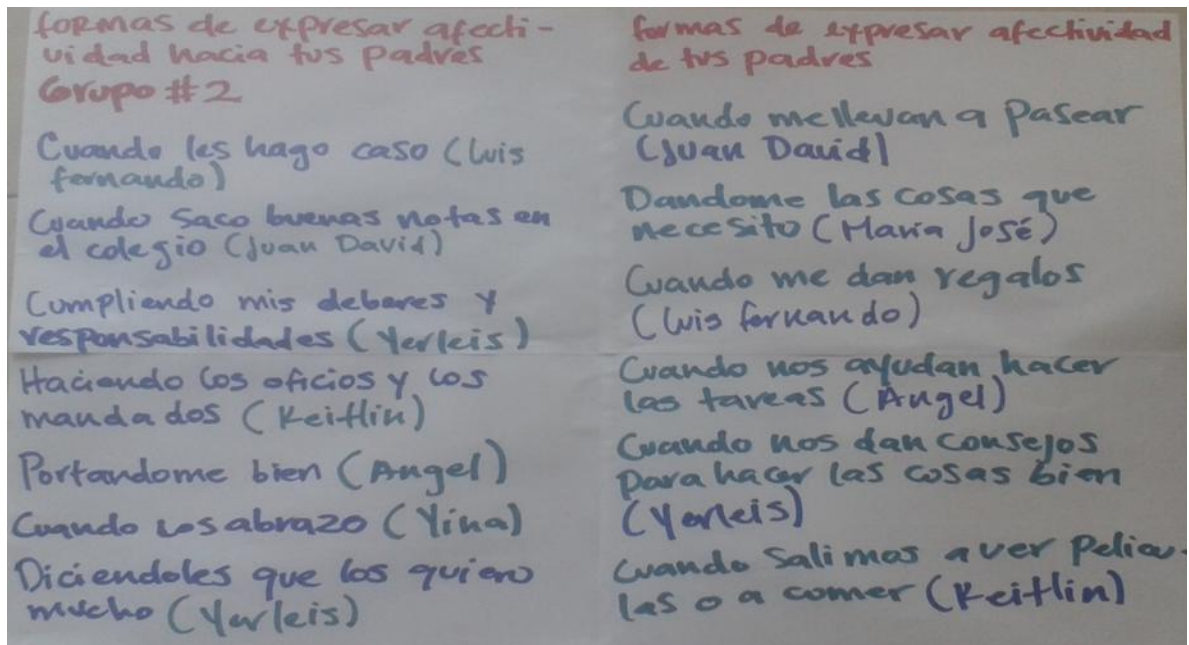 formas de expresar afecti-
vidad hacia tus padres
Grupo #2
Cuando les hago caso (Luis
fernando)
Cuando Saco buenas notas en
el colegio (Juan David)
Cumpliendo mis deberes y
responsabilidades (Yerleis)
Haciendo los oficios y los
mandados (Keitlin)
Portandome bien (Angel)
Cuando los abrazo (Yina)
Diciendoles que los quiero
mucho (Yerleis)
formas de expresar afectividad
de tus padres
Cuando me llevan a Pasear
(Juan David)
Dandome las cosas que
necesito (Maria José)
Cuando me dan regalos
(Luis fernando)
Cuando nos ayudan hacer
las tareas (Angel)
Cuando nos dan consejos
para hacer las cosas bien
(Yerleis)
Cuando Salimos a ver pelicu-
las o a comer (Keitlin)